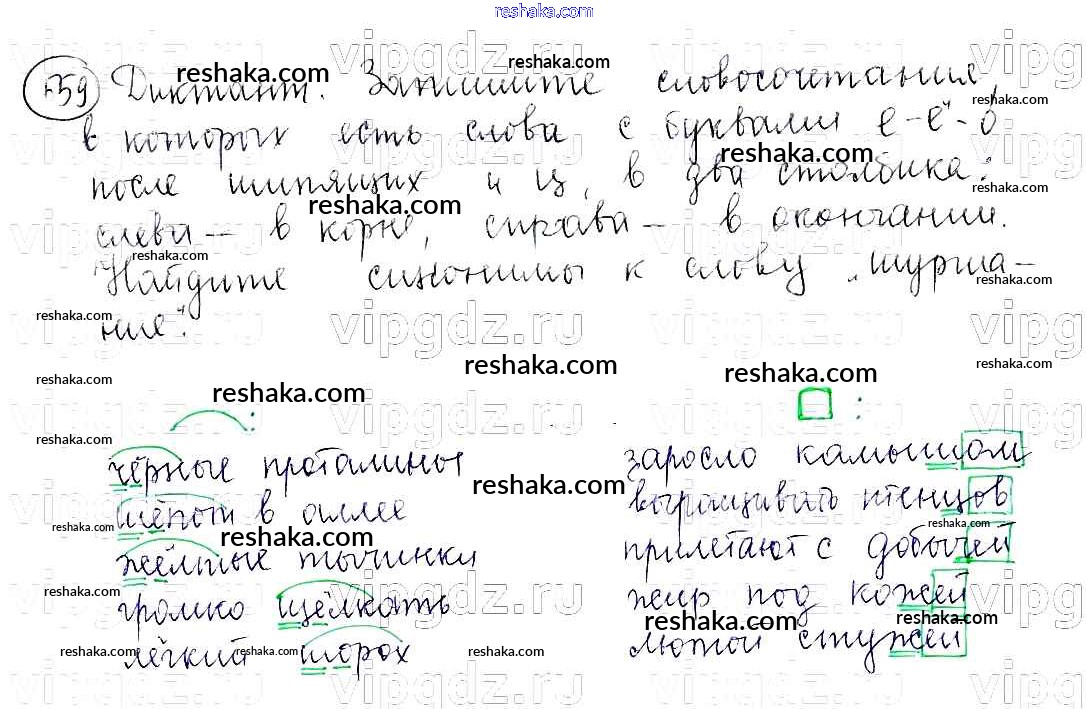 759 Диктант. Запишите словосочетания,
в которых есть слова с буквами е-ё-о
после шипящих и ц, в два столбика:
слева – в корне, справа – в окончании.
Найдите синонимы к слову „шурша-
ние".
чёрные проталины
шёпот в аллее
жёлтые тычинки
громко щёлкать
лёгкий шорох
заросло камышом
выращивать птенцов
прилетают с добычей
жир под кожей
лютой стужей
reshaka.com
vipgdz.ru